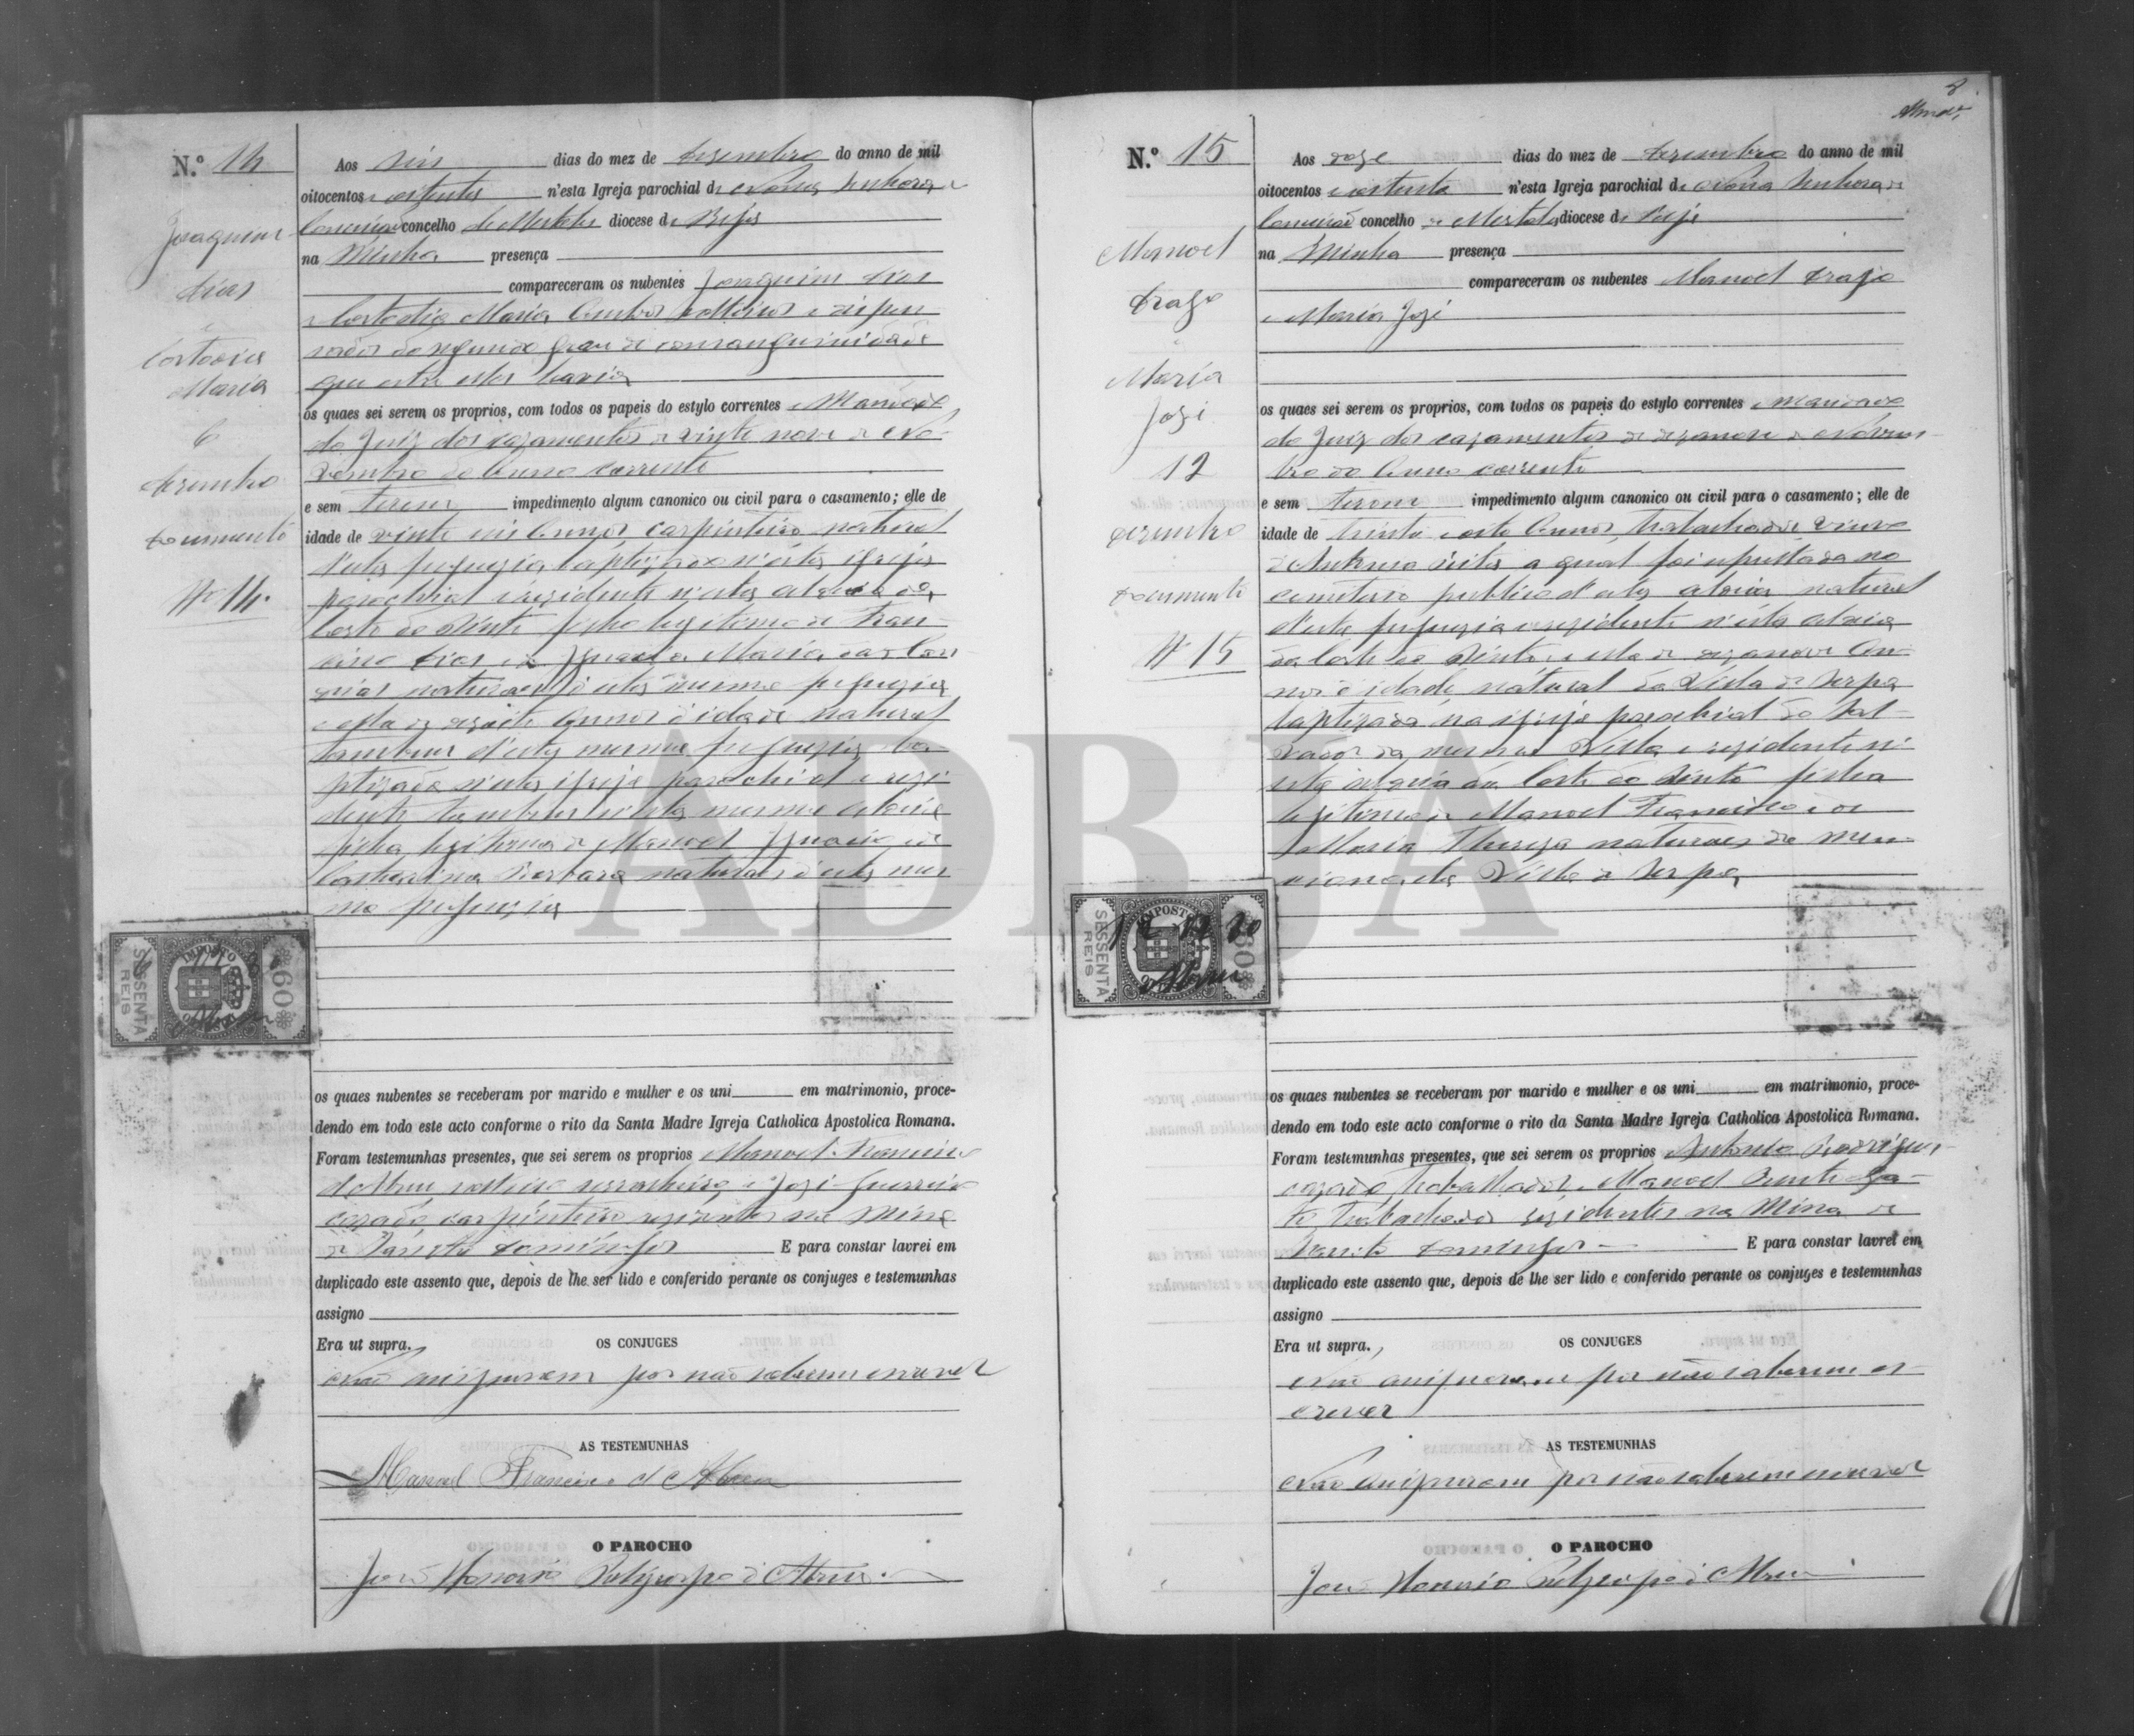 N.º 14
Joaquim
Dias
e
Custodia
Maria
6
Dezembro
Documento
Nº 14.
Aos seis dias do mez de Dezembro do anno de mil
oitocentos e oitenta n'esta Igreja parochial de Nossa Senhora da
Conceição concelho de Mertola diocese de Beja
na Minha presença
compareceram os nubentes Joaquim Dias
e Custodia Maria ambos solteiros e dispen
sados do segundo grau de consanguinidade
que entre elles havia
os quaes sei serem os proprios, com todos os papeis do estylo correntes e Mandado
do Juiz dos cazamentos de vinte nove de No-
vembro do Anno corrente
e sem terem impedimento algum canonico ou civil para o casamento; elle de
idade de vinte seis Annos, carpinteiro natural
d'esta freguezia baptizado n'esta igreja
parochial e rezidente n'esta aldeia da
Corte do Pinto filho legitimo de Fran-
cisco Dias e de Ignacia Maria
naturaes d'esta mesma freguezia
e ella de dezoito Annos d'idade natural
tambem d'esta mesma freguezia ba
ptizada n'esta igreja parochial e rezi-
dente tambem n'esta mesma aldeia
filha legitima de Manoel Ignacio e de
Catharina Barbara naturaes d'esta mes
ma freguezia
IMPOSTO
SESSENTA
REIS
60
os quaes nubentes se receberam por marido e mulher e os uni em matrimonio, proce-
dendo em todo este acto conforme o rito da Santa Madre Igreja Catholica Apostolica Romana.
Foram testemunhas presentes, que sei serem os proprios Manoel Francisco
d'Abreu solteiro serralheiro e José Guerreiro
cazado carpinteiro rezidentes na Mina
de Sancto Domingos E para constar lavrei em
duplicado este assento que, depois de lhe ser lido e conferido perante os conjuges e testemunhas
assigno
Era ut supra.
OS CONJUGES
Não assignaram por não saberem escrever
AS TESTEMUNHAS
Manoel Francisco d'Abreu
O PAROCHO
João Honorio d'Abreu
N.º 15
Manoel
Drago
e
Maria
José
12
Dezembro
Documento
Nº 15
Aos doze dias do mez de Dezembro do anno de mil
oitocentos e oitenta n'esta Igreja parochial de Nossa Senhora da
Conceição concelho de Mertola diocese de Beja
na Minha presença
compareceram os nubentes Manoel Drago
e Maria José
os quaes sei serem os proprios, com todos os papeis do estylo correntes e Mandado
do Juiz dos cazamentos de dezanove de Novem-
bro do Anno corrente
e sem terem impedimento algum canonico ou civil para o casamento; elle de
idade de trinta e oito Annos trabalhador viuvo
de Antonia Rita a qual foi sepultada no
cemiterio publico d'esta aldeia natural
d'esta freguezia e rezidente n'esta aldeia
da Corte do Pinto, e ella de dezanove An-
nos d'idade natural da Villa de Serpa
baptizada na igreja parochial do Sal-
vador da mesma Villa e rezidente n'
esta aldeia da Corte do Pinto filha
legitima de Manoel Francisco e de
Maria Thereza naturaes da men-
cionada Villa de Serpa
IMPOSTO
SESSENTA
REIS
60
12 12 80
Abreu
os quaes nubentes se receberam por marido e mulher e os uni em matrimonio, proce-
dendo em todo este acto conforme o rito da Santa Madre Igreja Catholica Apostolica Romana.
Foram testemunhas presentes, que sei serem os proprios Antonio Rodrigues
cazado trabalhador e Manoel
trabalhador rezidentes na Mina de
Sancto Domingos E para constar lavrei em
duplicado este assento que, depois de lhe ser lido e conferido perante os conjuges e testemunhas
assigno
Era ut supra.
OS CONJUGES
Não assignaram por não saberem es-
crever
AS TESTEMUNHAS
Não assignaram por não saberem escrever
O PAROCHO
João Honorio d'Abreu
ADBJA